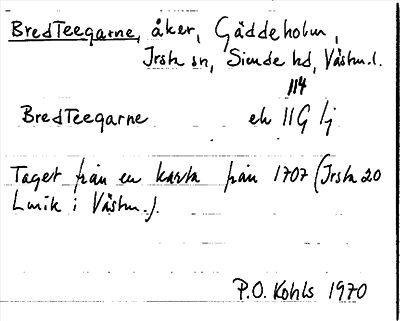 BredTeegarne, åker, Gäddeholm,
Irsta sn, Siende hd, Västm.l.
114
BredTeegarne ek 11G lj
Taget från en karta från 1707 (Irsta 20
Lmtk i Västm.).
P.O. Kohls 1970